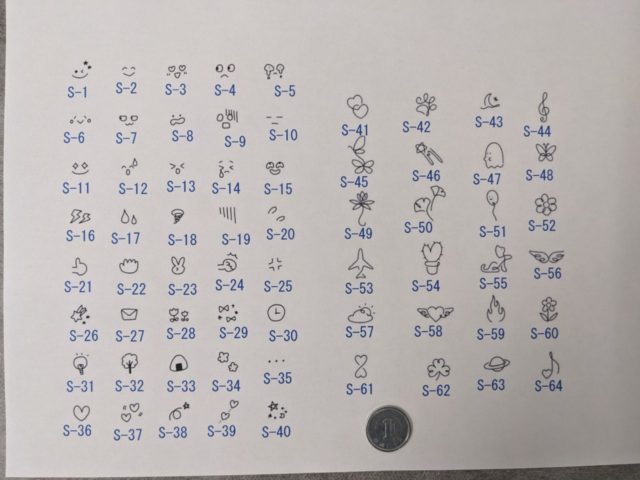 S-1 S-2 S-3 S-4 S-5
S-6 S-7 S-8 S-9 S-10
S-11 S-12 S-13 S-14 S-15
S-16 S-17 S-18 S-19 S-20
S-21 S-22 S-23 S-24 S-25
S-26 S-27 S-28 S-29 S-30
S-31 S-32 S-33 S-34 S-35
S-36 S-37 S-38 S-39 S-40
S-41 S-42 S-43 S-44
S-45 S-46 S-47 S-48
S-49 S-50 S-51 S-52
S-53 S-54 S-55 S-56
S-57 S-58 S-59 S-60
S-61 S-62 S-63 S-64
1